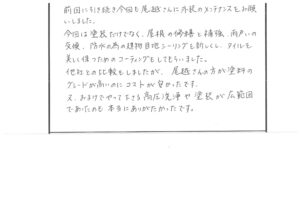 前回に引き続き今回も尾越さんに外装のメンテナンスをお願
いしました。
今回は塗装だけでなく、屋根の修繕と補強、雨どいの
交換、防水の為の建物目地シーリングも新しくし、タイルを
美しく保つためのコーティングもしてもらいました。
他社との比較もしましたが、尾越さんの方が塗料の
グレードが高いのにコストが安かったです。
又、おまけでやって下さる高圧洗浄や塗装が広範囲
であったのも本当にありがたかったです。